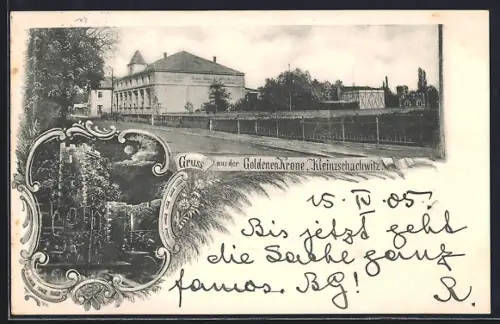 Gruss aus der Goldenen Krone, Kleinzschachwitz.
15. IV. 05.
Bis jetzt geht
die Sache ganz
famos. BG!
R.